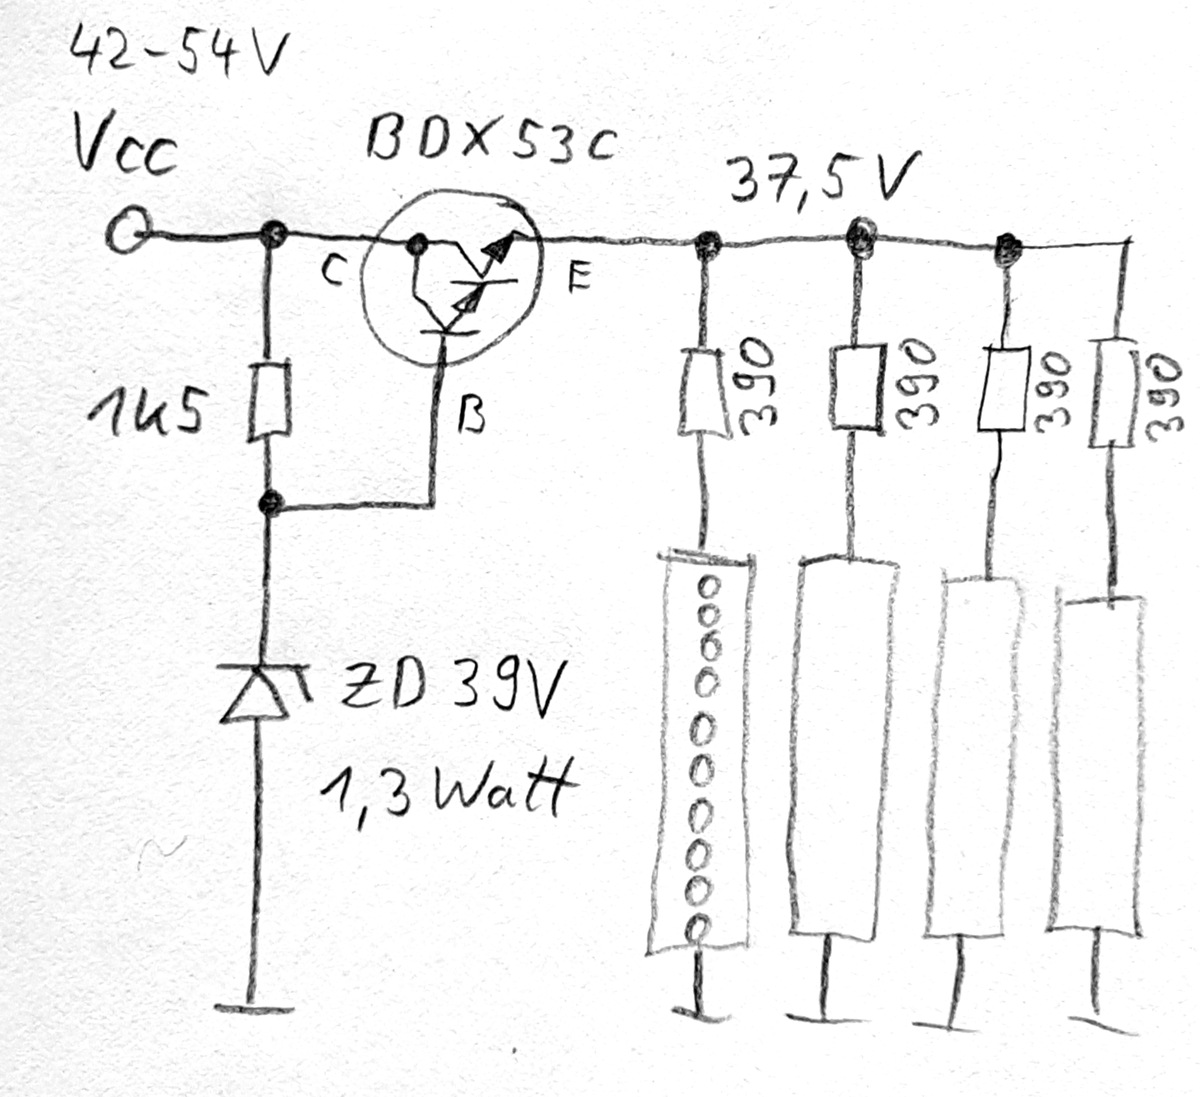 42-54V
Vcc
BDX53C
37,5V
C
E
B
1k5
390
390
390
390
ZD 39V
1,3 Watt